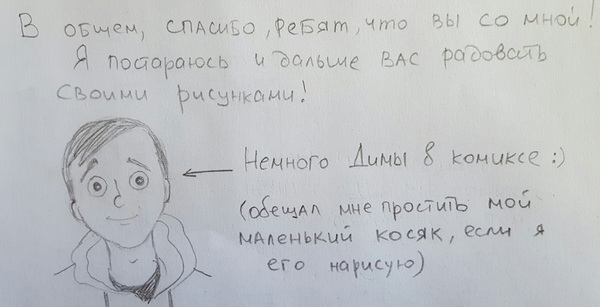 В общем, спасибо, ребят, что вы со мной!
Я постараюсь и дальше вас радовать
своими рисунками!
Немного Димы в комиксе :)
(обещал мне простить мой
маленький косяк, если я
его нарисую)